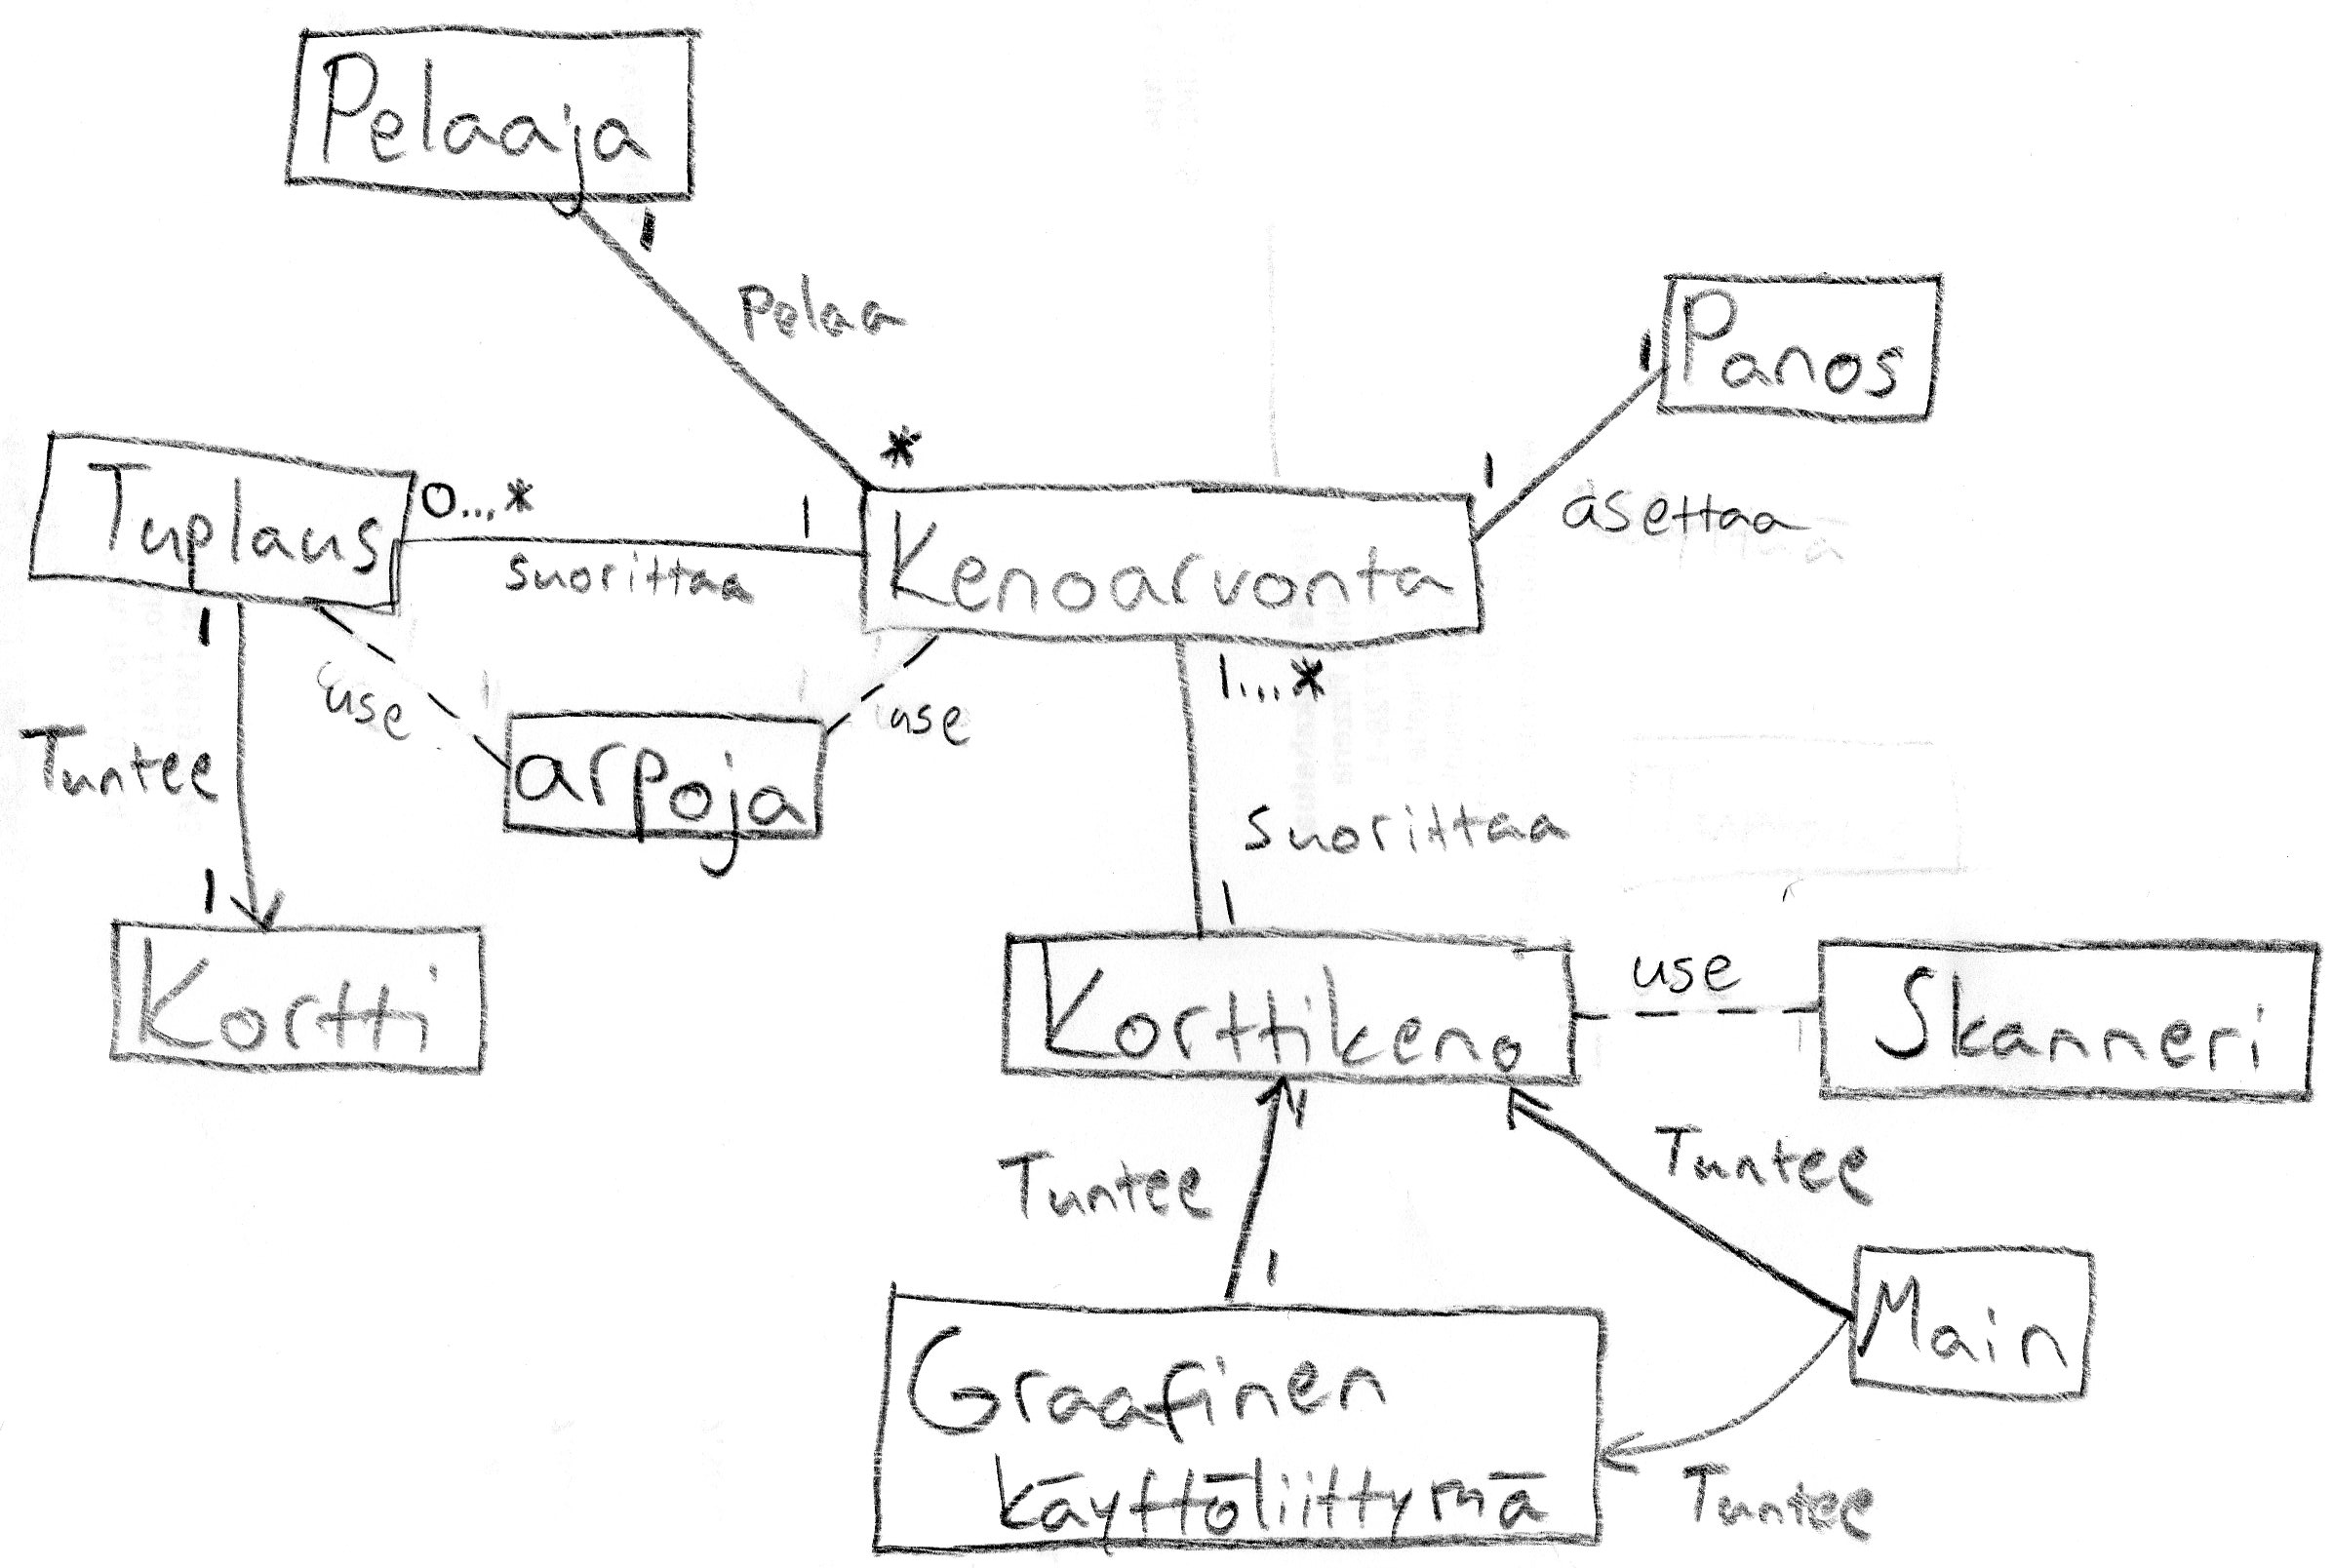 Pelaaja
1
Pelaa
Panos
1
*
1
asettaa
Tuplaus
0...*
1
suorittaa
Kenoarvonta
1
use
use
1...*
Tuntee
arpoja
suorittaa
1
1
Kortti
Korttikeno
use
Skanneri
1
Tuntee
Tuntee
1
Main
Graafinen
käyttöliittymä
Tuntee